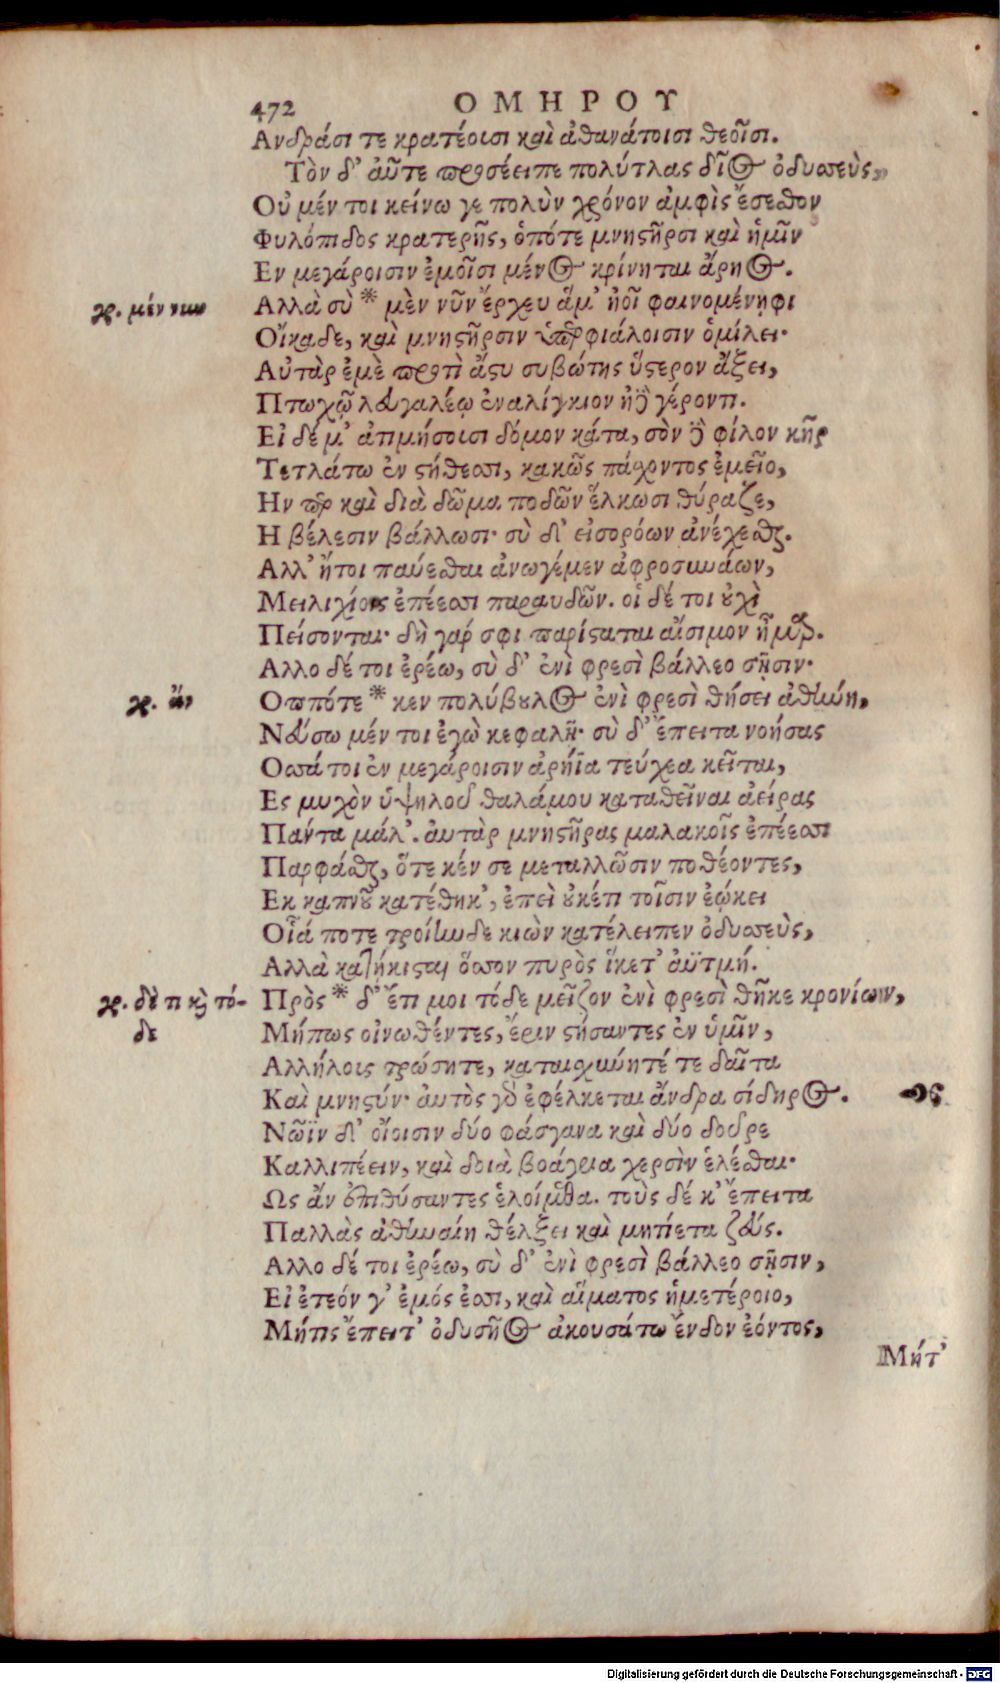 472 ΟΜΗΡΟΥ
Ανδράσι τε κρατέοισι καὶ ἀθανάτοισι θεοῖσι.
Τὸν δ' αὖτε προσέειπε πολύτλας δῖος ὀδυσσεὺς,
Οὐ μέν τοι κείνω γε πολὺν χρόνον ἀμφὶς ἔσεσθον
Φυλόπιδος κρατερῆς, ὁπότε μνηστῆρσι καὶ ἡμῖν
Εν μεγάροισιν ἐμοῖσι μένος κρίνηται ἄρηος.
γρ. μέν νιω
Αλλὰ σὺ * μὲν νῦν ἔρχευ ἅμ' ἠοῖ φαινομένηφι
Οἴκαδε, καὶ μνηστῆρσιν ὑπερφιάλοισιν ὁμίλει·
Αὐτὰρ ἐμὲ προτὶ ἄστυ συβώτης ὕστερον ἄξει,
Πτωχῷ λευγαλέῳ ἐναλίγκιον ἠδὲ γέροντι.
Εἰ δέ μ' ἀτιμήσουσι δόμον κάτα, σὸν δὲ φίλον κῆρ
Τετλάτω ἐν στήθεσσι, κακῶς πάχοντος ἐμεῖο,
Ην περ καὶ διὰ δῶμα ποδῶν ἕλκωσι θύραζε,
Η βέλεσιν βάλλωσι· σὺ δ' εἰσορόων ἀνέχεσθαι.
Αλλ' ἤτοι παύεσθαι ἀνωγέμεν ἀφροσυνάων,
Μειλιχίοις ἐπέεσσι παραυδῶν. οἱ δέ τοι οὐχὶ
Πείσονται· δὴ γάρ σφι παρίσταται αἴσιμον ἦμαρ.
Αλλο δέ τοι ἐρέω, σὺ δ' ἐνὶ φρεσὶ βάλλεο σῇσιν·
γρ. ἄν
Οππότε * κεν πολύβουλος ἐνὶ φρεσὶ θήσει ἀθήνη,
Νεύσω μέν τοι ἐγὼ κεφαλῇ· σὺ δ' ἔπειτα νοήσας
Οσσά τοι ἐν μεγάροισιν ἀρήϊα τεύχεα κεῖται,
Ες μυχὸν ὑψηλοῦ θαλάμου καταθεῖναι ἀείρας
Πάντα μάλ'. αὐτὰρ μνηστῆρας μαλακοῖς ἐπέεσσι
Παρφάσθαι, ὅτε κέν σε μεταλλῶσιν ποθέοντες,
Εκ καπνοῦ κατέθηκ', ἐπεὶ οὐκέτι τοῖσιν ἐῴκει
Οἷά ποτε τροίηνδε κιὼν κατέλειπεν ὀδυσσεὺς,
Αλλὰ κατῄκισται ὅσσον πυρὸς ἵκετ' ἀϋτμή.
γρ. δὲ τι καὶ τό-
δε
Πρὸς * δ' ἔτι μοι τόδε μεῖζον ἐνὶ φρεσὶ θῆκε κρονίων,
Μήπως οἰνωθέντες, ἔριν στήσαντες ἐν ὑμῖν,
Αλλήλοις τρώσητε, καταισχύνητέ τε δαῖτα
Καὶ μνηστύν· αὐτὸς γὰρ ἐφέλκεται ἄνδρα σίδηρος.
Νῶϊν δ' οἴοισιν δύο φάσγανα καὶ δύο δοῦρε
Καλλιπέειν, καὶ δοιὰ βοάγρια χερσὶν ἑλέσθαι·
Ως ἂν ἐπιθύσαντες ἑλοίμεθα. τοὺς δέ κ' ἔπειτα
Παλλὰς ἀθηναίη θέλξει καὶ μητίετα ζεύς.
Αλλο δέ τοι ἐρέω, σὺ δ' ἐνὶ φρεσὶ βάλλεο σῇσιν,
Εἰ ἐτεόν γ' ἐμός ἐσσι, καὶ αἵματος ἡμετέροιο,
Μήτις ἔπειτ' ὀδυσῆος ἀκουσάτω ἔνδον ἐόντος,
Μήτ'
Digitalisierung gefördert durch die Deutsche Forschungsgemeinschaft - DFG